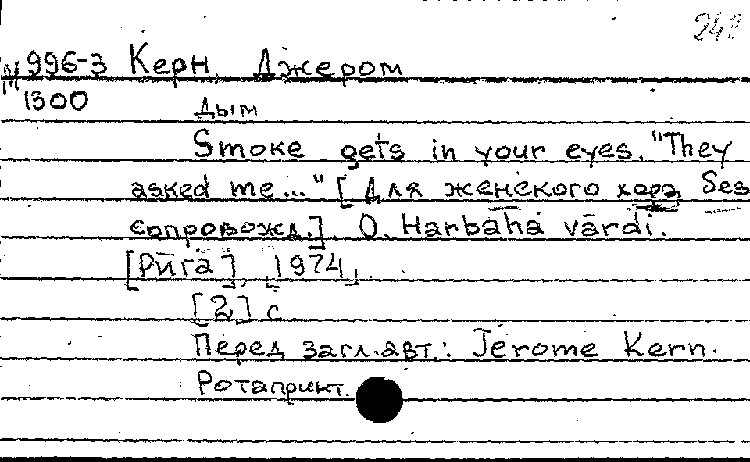 242
М 996-3 Керн, Джером
1300
Дым
Smoke gets in your eyes. "They
asked me..." [Для женского хора, без
сопровожд.]. O. Harbaha vārdi.
[Рига], [1974].
[2] с
Перед загл. авт.: Jerome Kern.
Ротапринт.